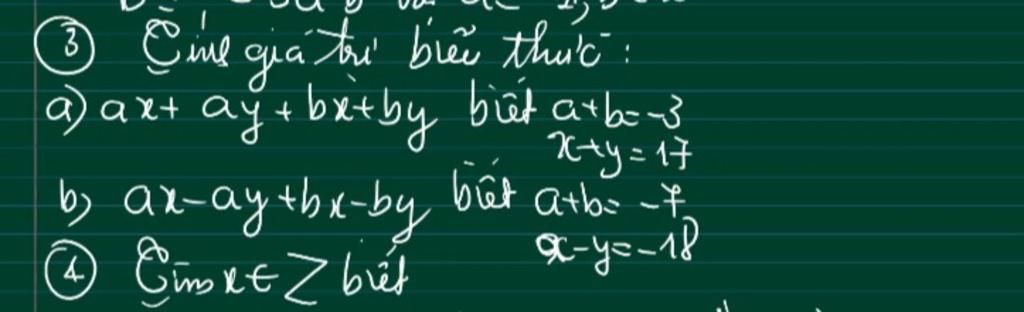 ③ Tính giá trị biểu thức:
a) ax + ay + bx + by biết a+b=-3
x+y=17
b) ax-ay+bx-by biết a+b=-7
x-y=-18
④ Tìm x ∈ Z biết